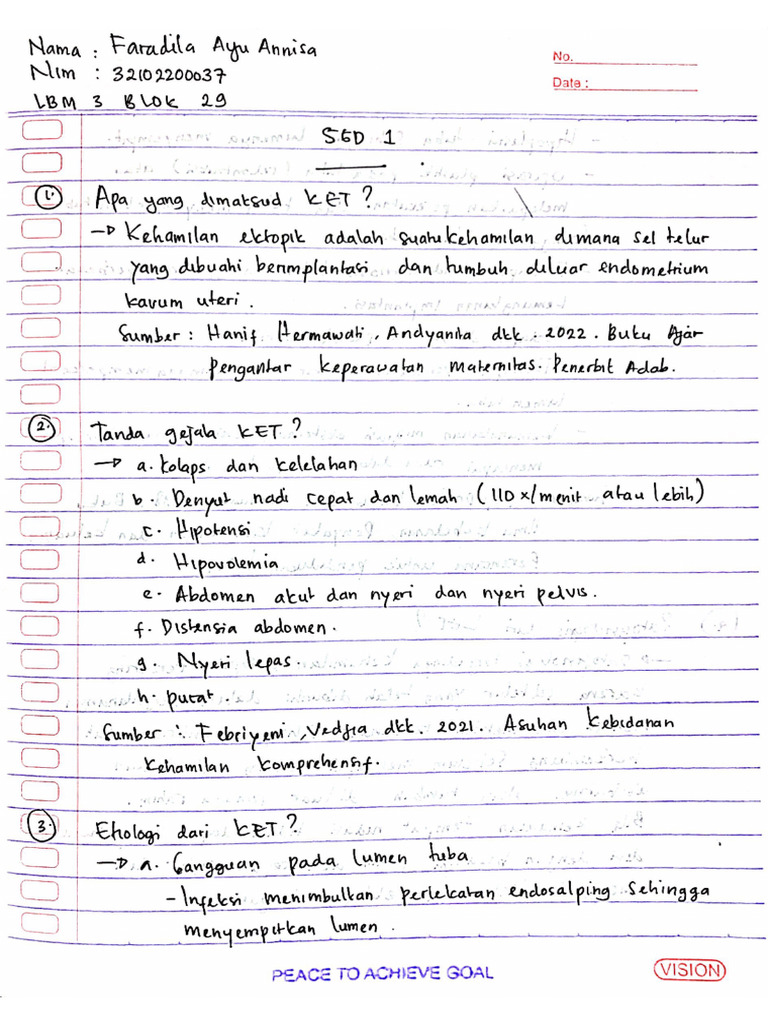 Nama : Faradila Ayu Annisa
No.
NIM : 32102200037
Date :
LBM 3 BLOK 29
SGD 1
1. Apa yang dimaksud KET ?
→ Kehamilan ektopik adalah suatu kehamilan dimana sel telur
yang dibuahi berimplantasi dan tumbuh diluar endometrium
kavum uteri .
Sumber : Hanif Hermawati, Andyanita dkk. 2022. Buku Ajar
pengantar keperawatan maternitas. Penerbit Adab.
2. Tanda gejala KET ?
→ a. Kolaps dan kelelahan
b. Denyut nadi cepat dan lemah (110x/menit atau lebih)
c. Hipotensi
d. Hipovolemia
e. Abdomen akut dan nyeri dan nyeri pelvis.
f. Distensia abdomen.
g. Nyeri lepas.
h. pucat.
Sumber : Febriyeni, Vedjia dkk. 2021. Asuhan kebidanan
kehamilan komprehensif.
3. Etiologi dari KET ?
→ a. Gangguan pada lumen tuba
- Infeksi menimbulkan perlekatan endosalping sehingga
menyempitkan lumen .
PEACE TO ACHIEVE GOAL
VISION